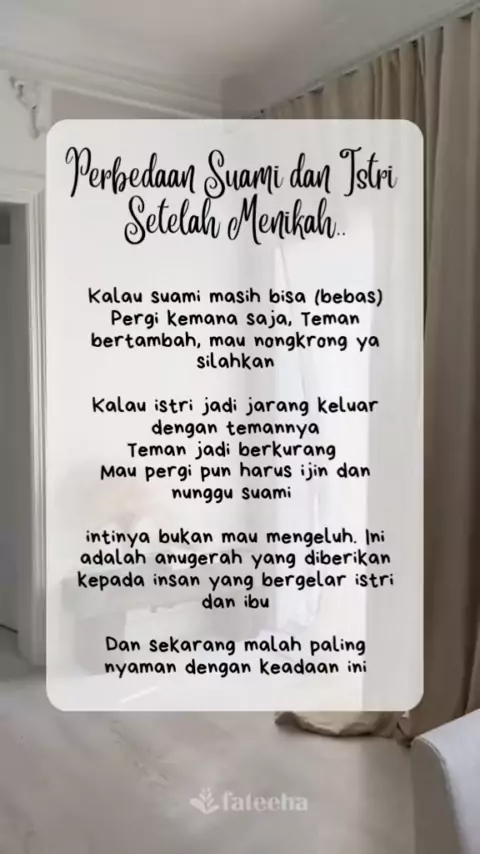 Perbedaan Suami dan Istri
Setelah Menikah..
Kalau suami masih bisa (bebas)
Pergi kemana saja, Teman
bertambah, mau nongkrong ya
silahkan
Kalau istri jadi jarang keluar
dengan temannya
Teman jadi berkurang
Mau pergi pun harus ijin dan
nunggu suami
intinya bukan mau mengeluh. Ini
adalah anugerah yang diberikan
kepada insan yang bergelar istri
dan ibu
Dan sekarang malah paling
nyaman dengan keadaan ini
fateeha